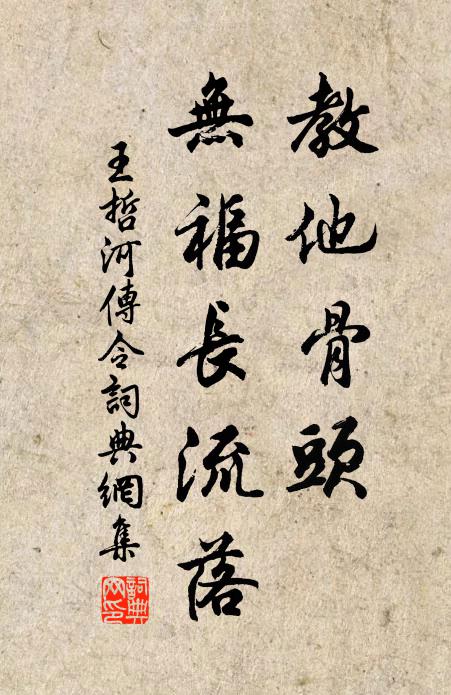 教他骨頭
無福長流落
王哲河傳令詞典網集
詞典網印